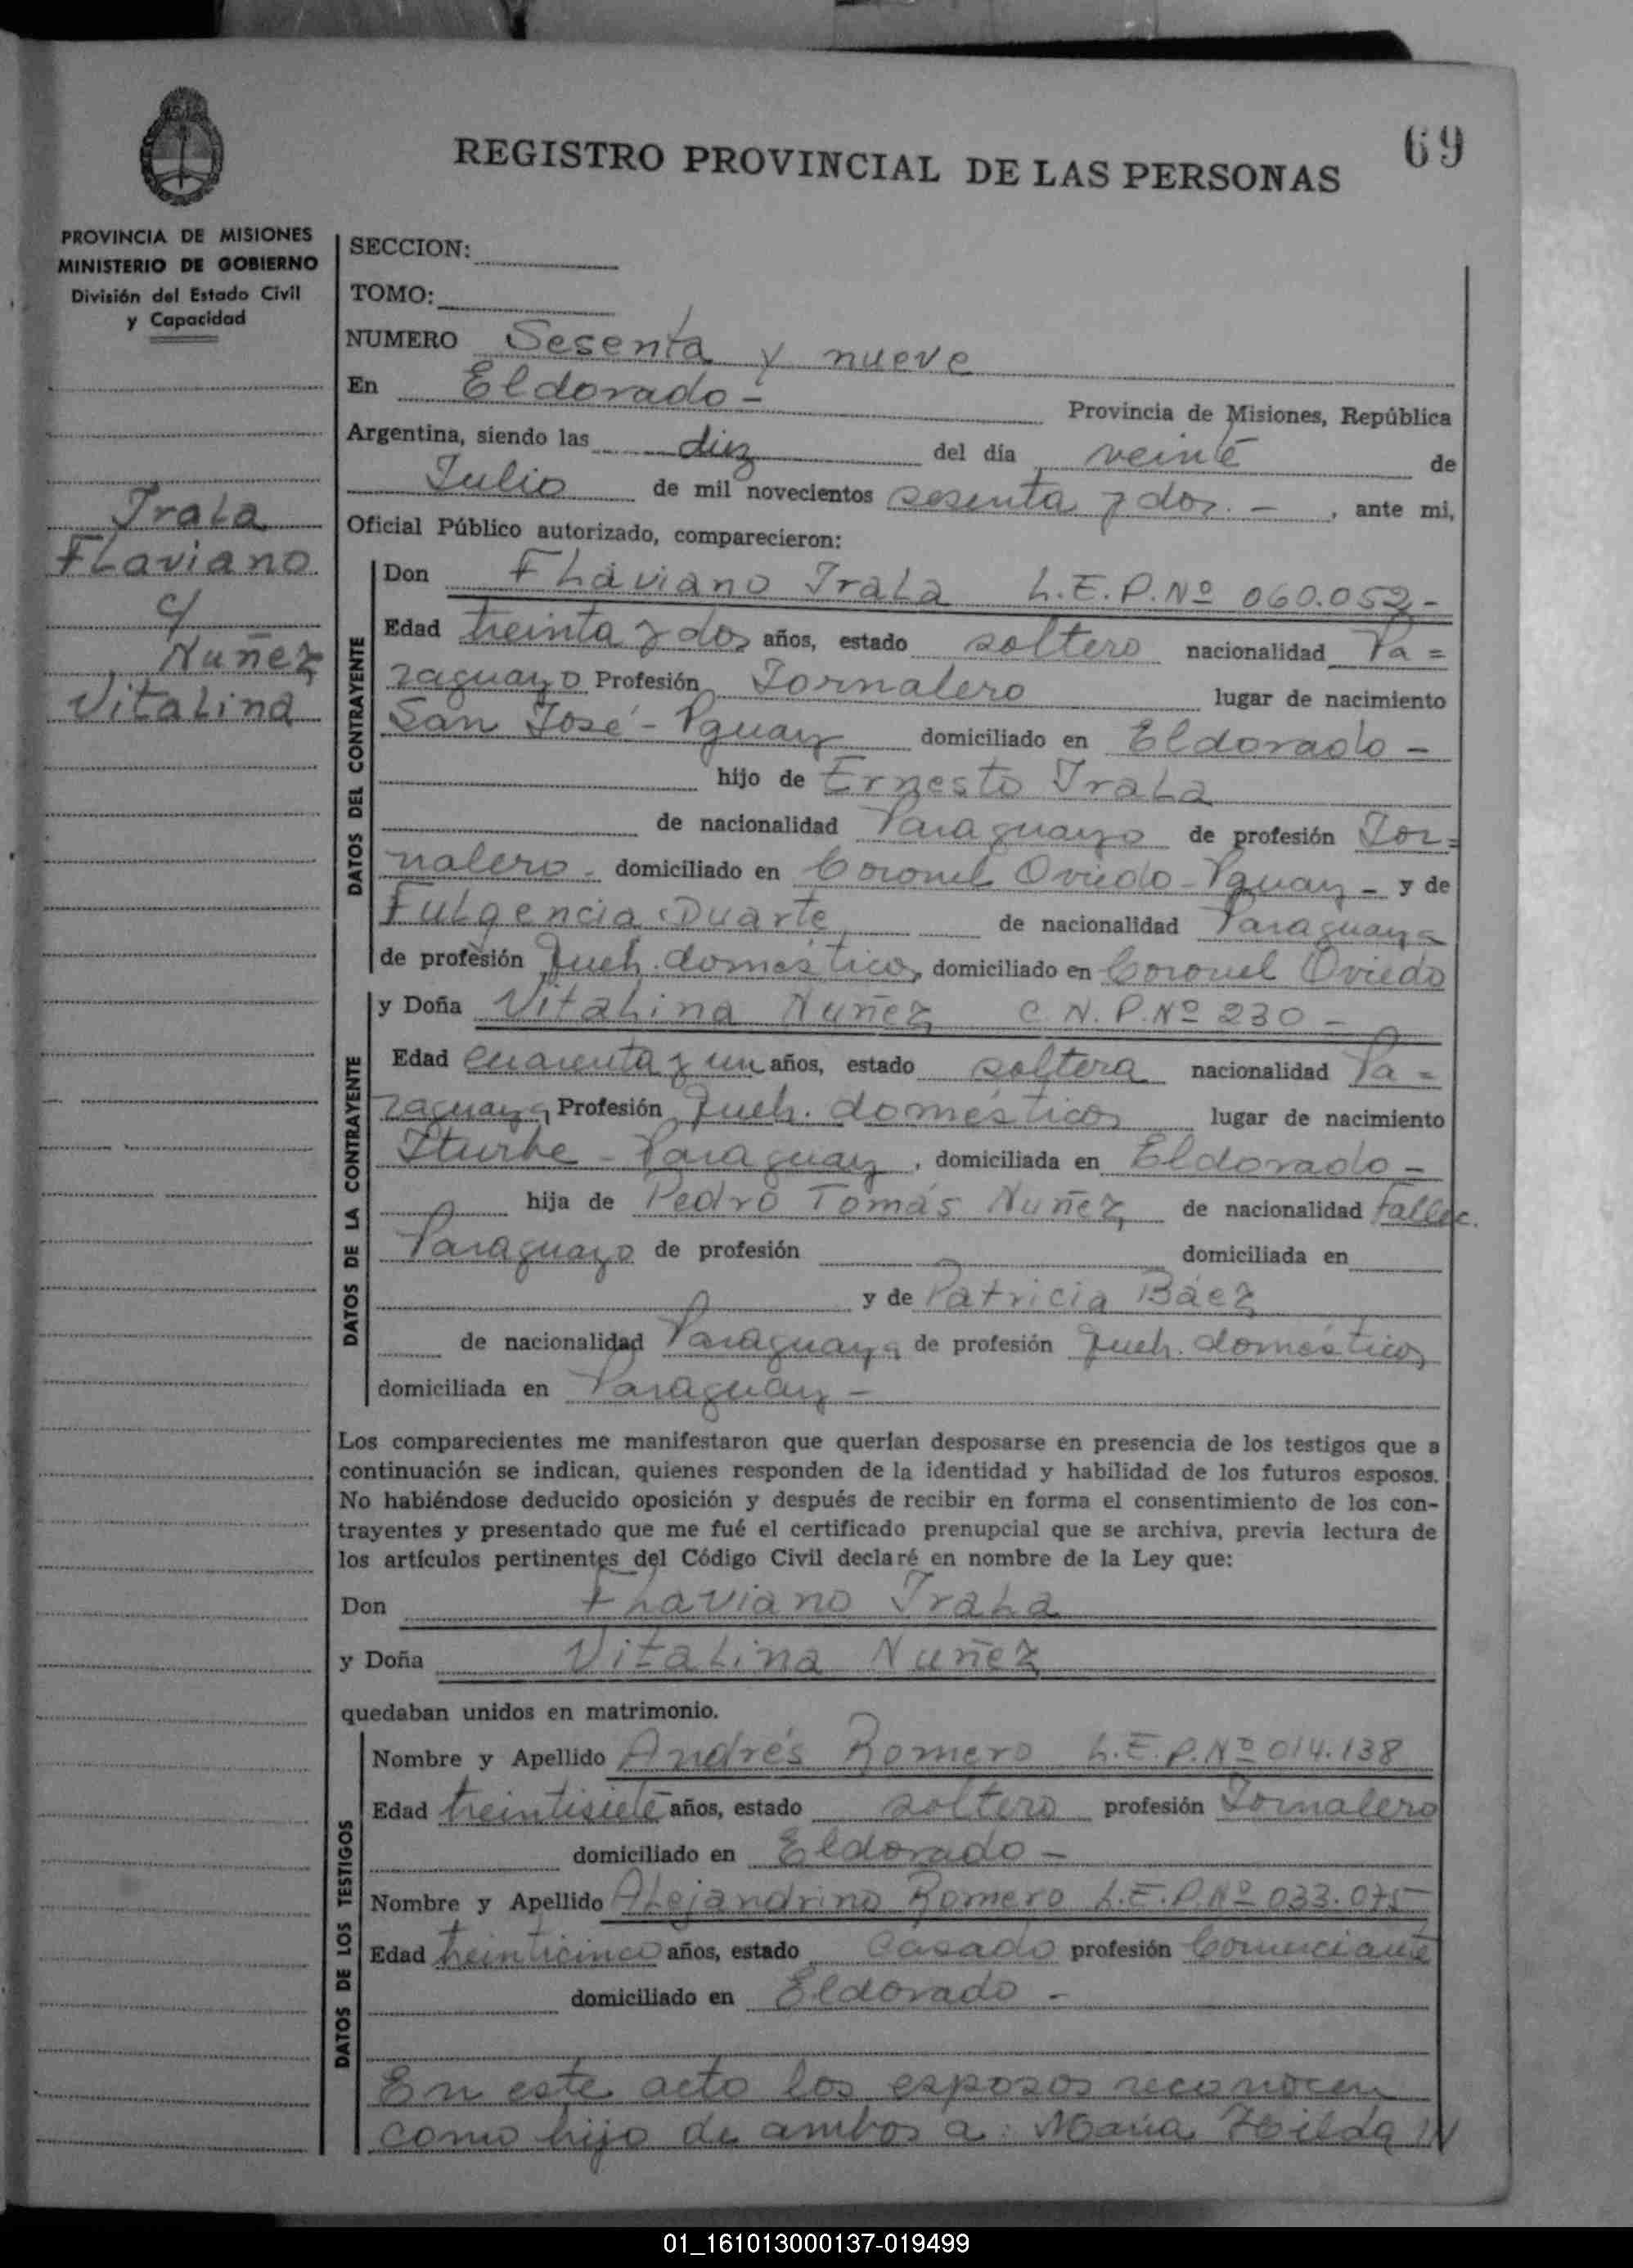 69
REGISTRO PROVINCIAL DE LAS PERSONAS
PROVINCIA DE MISIONES
MINISTERIO DE GOBIERNO
División del Estado Civil
y Capacidad
Irala
Flaviano
c/
Nuñez
Vitalina
SECCION:
TOMO:
NUMERO Sesenta y nueve
En Eldorado - Provincia de Misiones, República
Argentina, siendo las diez del día veinte de
Julio de mil novecientos sesenta y dos. - , ante mi,
Oficial Público autorizado, comparecieron:
DATOS DEL CONTRAYENTE
Don Flaviano Irala L.E.P.Nº 060.052-
Edad treinta y dos años, estado soltero nacionalidad Pa=
raguayo Profesión Jornalero lugar de nacimiento
San José - Pguay domiciliado en Eldorado -
hijo de Ernesto Irala
de nacionalidad Paraguayo de profesión Jor=
nalero - domiciliado en Coronel Oviedo - Pguay - y de
Fulgencia Duarte de nacionalidad Paraguaya
de profesión Queh. domésticos, domiciliado en Coronel Oviedo
DATOS DE LA CONTRAYENTE
y Doña Vitalina Nuñez C.N.P.Nº 230 -
Edad cuarenta y un años, estado soltera nacionalidad Pa=
raguaya Profesión Queh. domésticos lugar de nacimiento
Iturbe - Paraguay, domiciliada en Eldorado -
hija de Pedro Tomás Nuñez de nacionalidad Fallec.
Paraguayo de profesión domiciliada en
y de Patricia Báez
de nacionalidad Paraguaya de profesión Queh. domésticos
domiciliada en Paraguay -
Los comparecientes me manifestaron que querían desposarse en presencia de los testigos que a
continuación se indican, quienes responden de la identidad y habilidad de los futuros esposos.
No habiéndose deducido oposición y después de recibir en forma el consentimiento de los con-
trayentes y presentado que me fué el certificado prenupcial que se archiva, previa lectura de
los artículos pertinentes del Código Civil declaré en nombre de la Ley que:
Don Flaviano Irala
y Doña Vitalina Nuñez
quedaban unidos en matrimonio.
DATOS DE LOS TESTIGOS
Nombre y Apellido Andrés Romero L.E.P.Nº 014.138
Edad treintisiete años, estado soltero profesión Jornalero
domiciliado en Eldorado -
Nombre y Apellido Alejandrino Romero L.E.P.Nº 033.075
Edad treinticinco años, estado casado profesión Comerciante
domiciliado en Eldorado -
En este acto los esposos reconocen
como hijo de ambos a: María Hilda
01_161013000137-019499